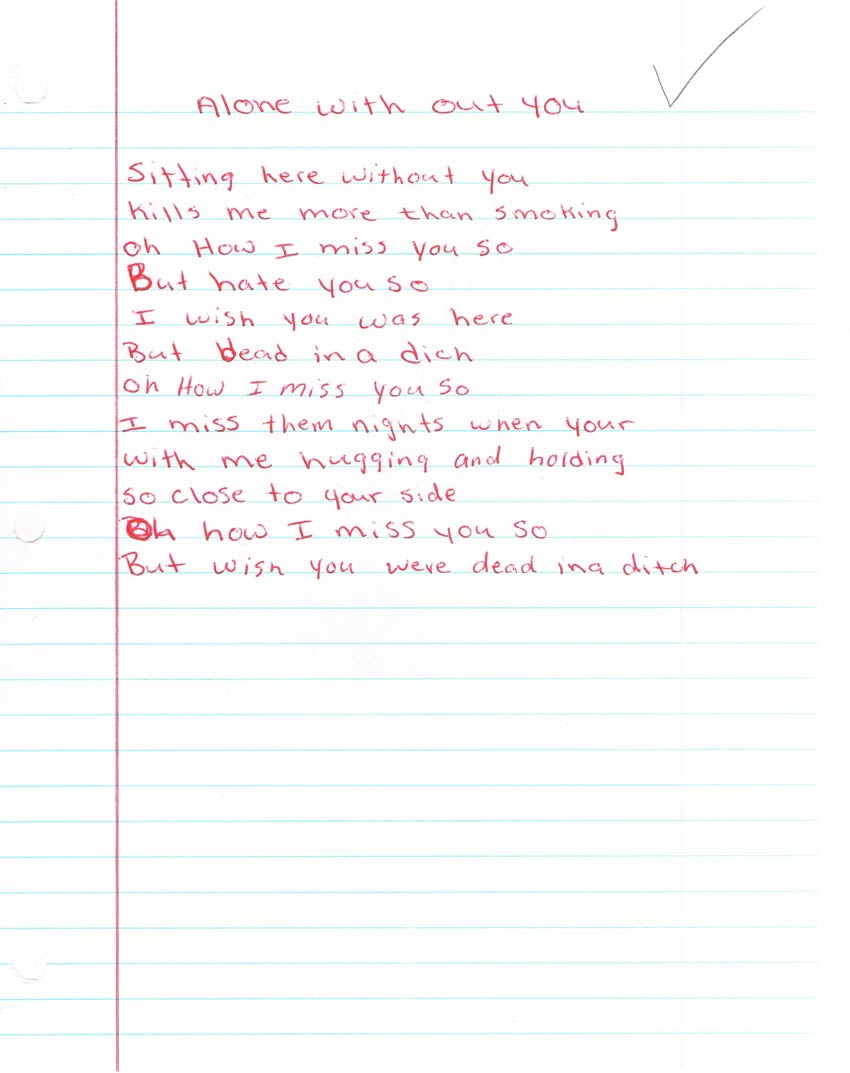 Alone with out you
Sitting here without you
Kills me more than smoking
Oh How I miss you so
But hate you so
I wish you was here
But dead in a dich
Oh How I miss you so
I miss them nights when your
with me hugging and holding
so close to your side
Oh how I miss you so
But wish you were dead in a ditch